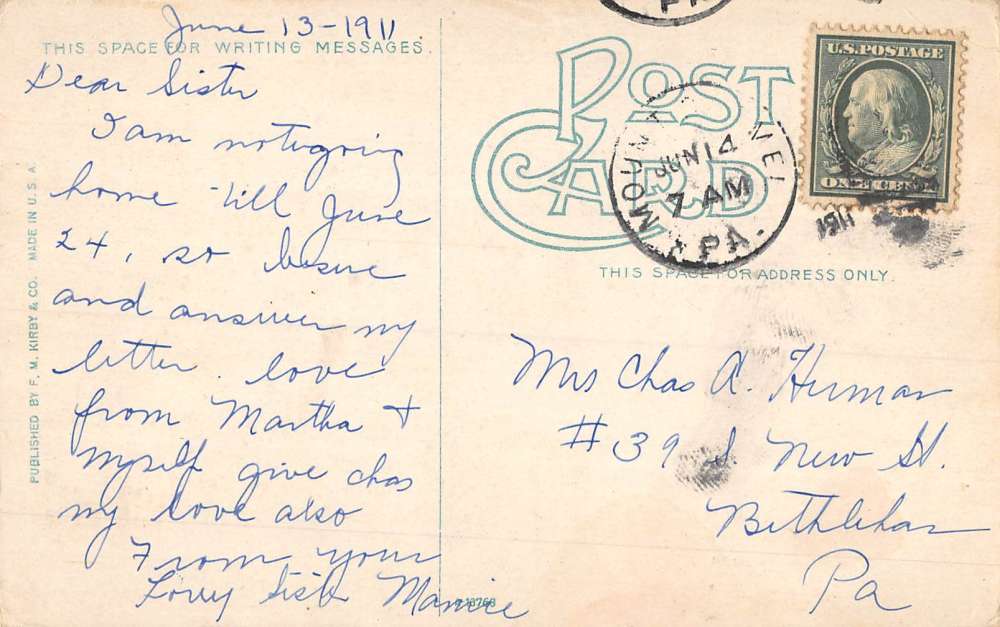 June 13-1911
THIS SPACE FOR WRITING MESSAGES.
Dear Sister
I am not going
home 'till June
24, so besure
and answer my
letter. love
from Martha +
myself give chas
my love also
From your
Lovey Sister Mamie
PUBLISHED BY F. M. KIRBY & CO. MADE IN U.S.A.
POST CARD
PA
MOUNT
JUN 14
7 AM
PA.
1911
U.S. POSTAGE
ONE CENT
THIS SPACE FOR ADDRESS ONLY.
Mrs Chas A. Herman
#39 S. New St.
Bethlehem
Pa